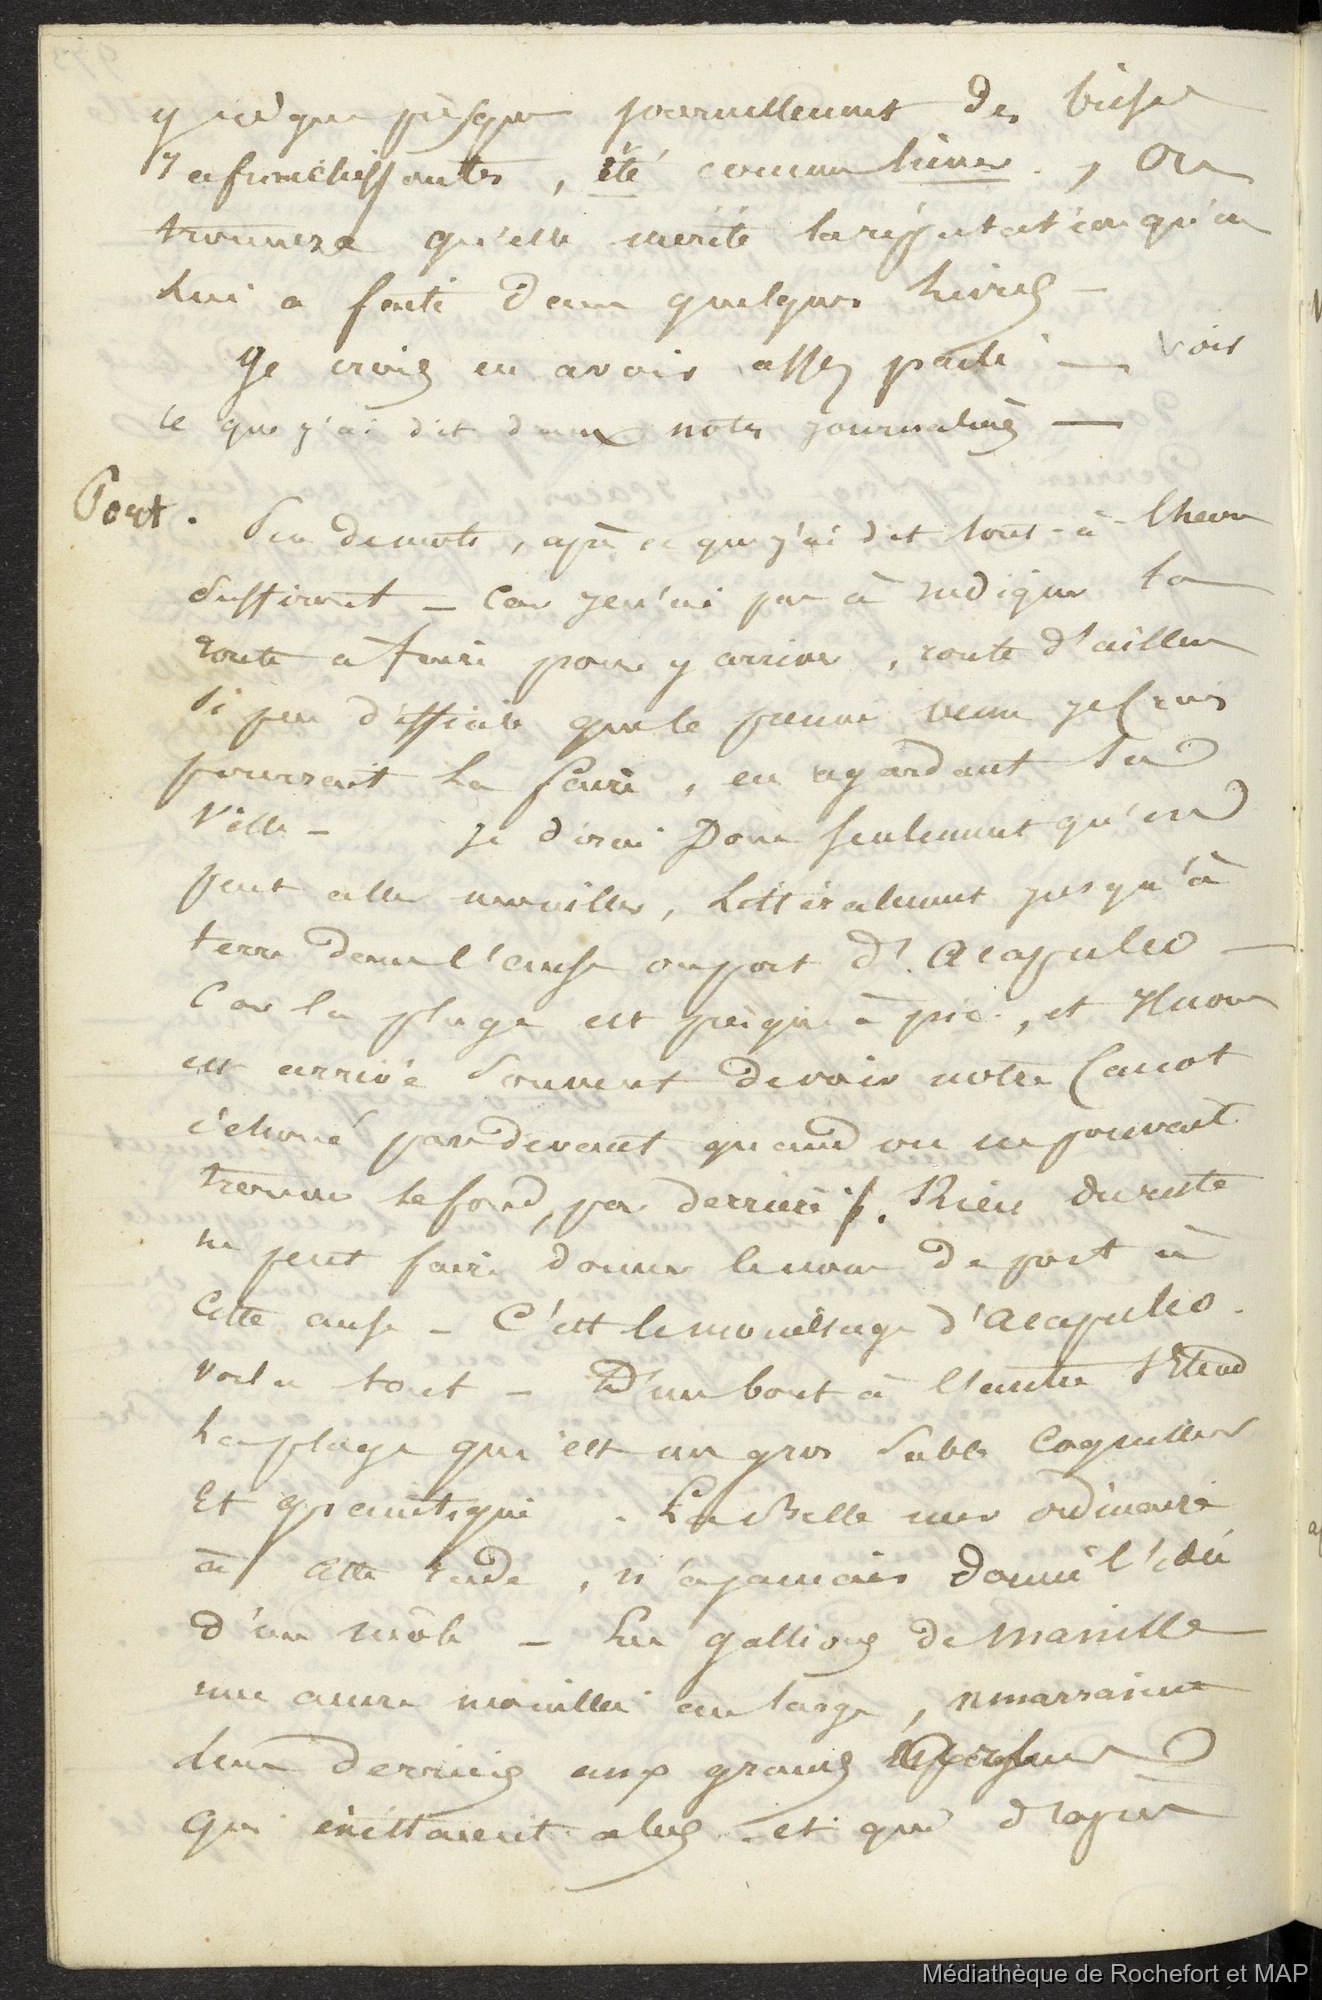 y règne presque journellement des brises
rafraichissantes, été comme hiver., on
trouvera qu'elle mérite la réputation qu'on
lui a faite dans quelques livres –
Je crois en avoir assez parlé — Voir
ce que j'ai dit dans notes journalières —
Port. Peu de mots, après ce que j'ai dit tout-à-l'heure
suffiront – Car je n'ai pas à indiquer la
route à tenir pour y arriver, route d'ailleurs
si peu difficile que le premier venu je crois
pourrait la faire, en regardant la
Ville – Je dirai Donc seulement qu'on
peut aller mouiller, littéralement jusqu'à
terre dans l'anse ou port d'Acapulco –
Car la plage est presque à pic, et il nous
est arrivé souvent de voir notre Canot
échoué par devant quand on ne pouvait
trouver le fond, par derrière. Rien du reste
ne peut faire donner le nom de port à
Cette anse – C'est le mouillage d'Acapulco.
voilà tout – D'un bout à l'autre s'étend
la plage qui est un gros sable coquiller
Et granitique. La belle mer ordinaire
à cette rade, n'a jamais donné l'idée
d'un môle – Les gallions de Manille
une ancre mouillée au large, amarraient
leur derrière aux grands arbres
qui existaient alors et qui d'après
Médiathèque de Rochefort et MAP